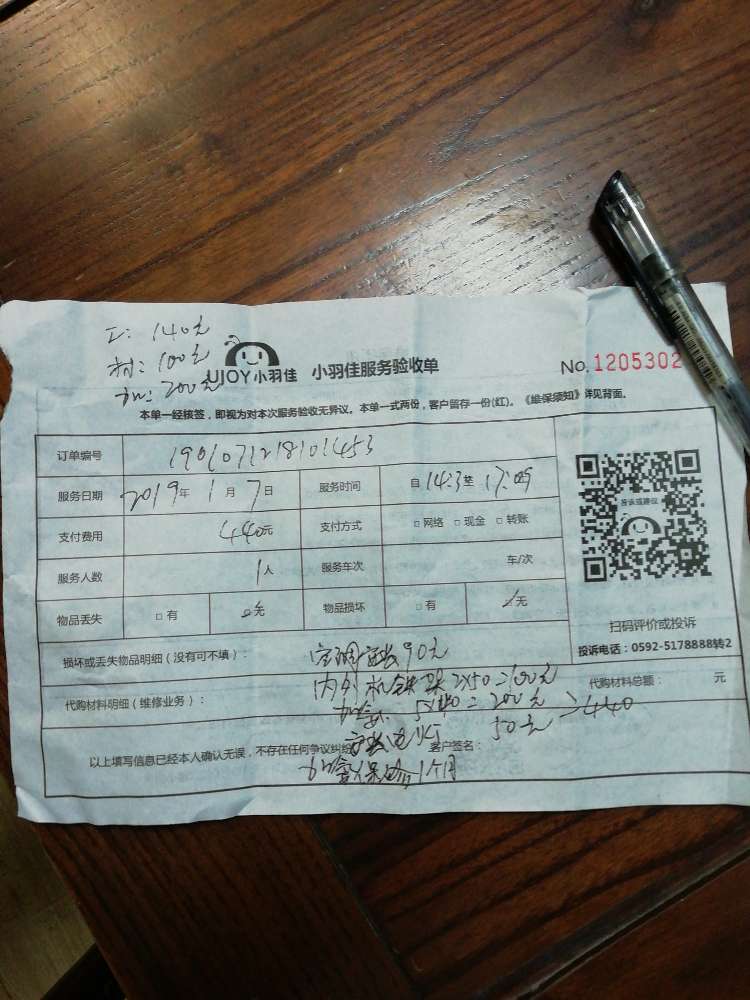 工: 140元
材: 100元
加: 200元
UJOY小羽佳 小羽佳服务验收单
No. 1205302
本单一经核签，即视为对本次服务验收无异议。本单一式两份，客户留存一份(红)。《维保须知》详见背面。
订单编号 1901071218101453
服务日期 2019年 1月 7日 服务时间 自 14:3 至 17:09
支付费用 440元 支付方式 □网络 □现金 □转账
服务人数 1人 服务车次 车/次
物品丢失 □有 □无 物品损坏 □有 □无
扫码评价或投诉
投诉电话：0592-5178888转2
损坏或丢失物品明细（没有可不填）： 空调 90元
代购材料明细（维修业务）： 内外机铁架 2X50=100元 代购材料总额： 元
5X40=200元
50元 440
以上填写信息已经本人确认无误，不存在任何争议纠纷 客户签名：
保 1个月